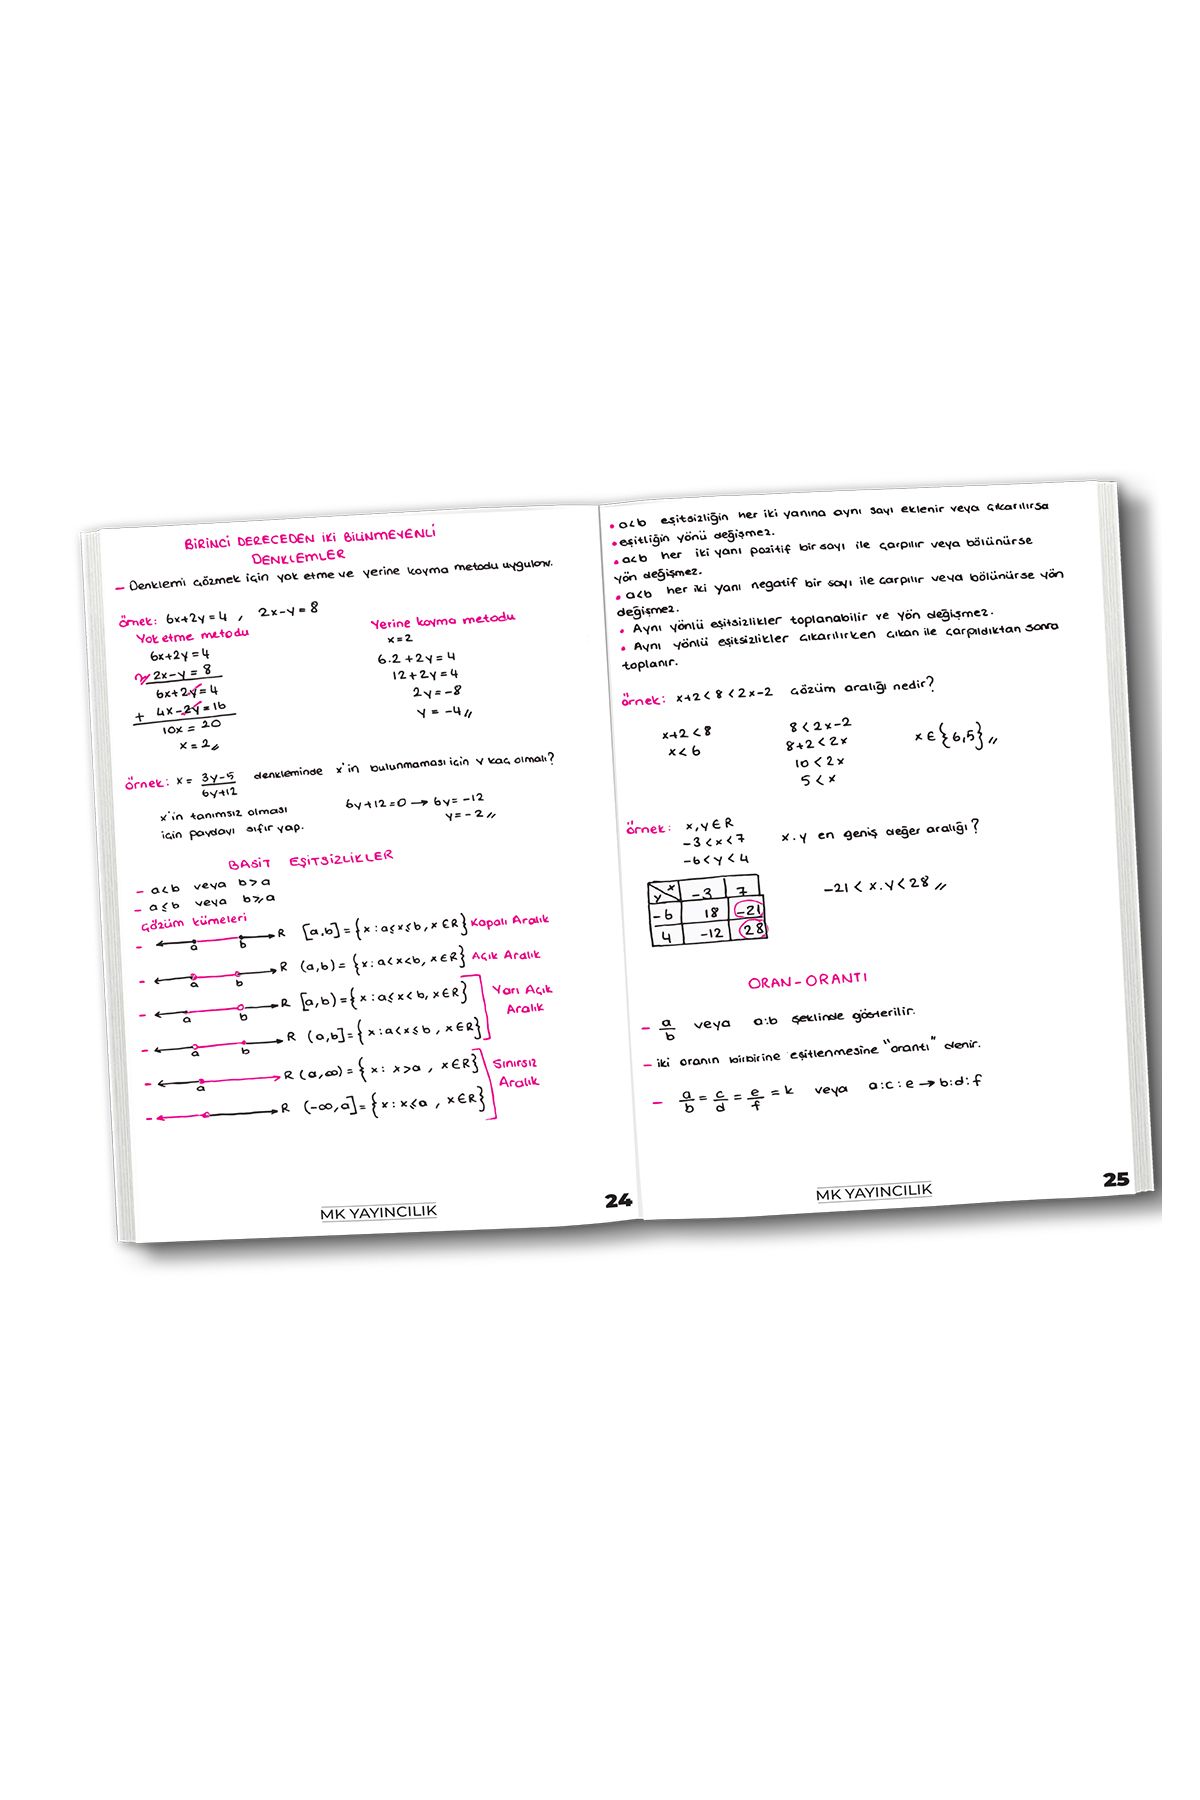 BİRİNCİ DERECEDEN İKİ BİLİNMEYENLİ
DENKLEMLER
- Denklemi çözmek için yok etme ve yerine koyma metodu uygulanır.
örnek: 6x+2y=4 , 2x-y=8
Yok etme metodu
6x+2y=4
2/ 2x-y=8
6x+2y=4
+ 4x-2y=16
10x=20
x=2//
Yerine koyma metodu
x=2
6.2+2y=4
12+2y=4
2y=-8
y=-4//
örnek: x= 3y-5/6y+12 denkleminde x'in bulunmaması için y kaç olmalı?
x'in tanımsız olması
için paydayı sıfır yap.
6y+12=0 → 6y=-12
y=-2//
BASİT EŞİTSİZLİKLER
- a<b veya b>a
- a≤b veya b≥a
Çözüm kümeleri
- a b R [a,b]={x:a≤x≤b, x∈R} Kapalı Aralık
- a b R (a,b)={x:a<x<b, x∈R} Açık Aralık
- a b R [a,b)={x:a≤x<b, x∈R} Yarı Açık
Aralık
- a b R (a,b]={x:a<x≤b, x∈R}
- a R (a,∞)={x: x>a, x∈R} Sınırsız
Aralık
- R (-∞,a]={x: x≤a, x∈R}
MK YAYINCILIK
24
• a<b eşitsizliğin her iki yanına aynı sayı eklenir veya çıkarılırsa
• eşitliğin yönü değişmez.
• a<b her iki yanı pozitif bir sayı ile çarpılır veya bölünürse
yön değişmez.
• a<b her iki yanı negatif bir sayı ile çarpılır veya bölünürse yön
değişmez.
• Aynı yönlü eşitsizlikler toplanabilir ve yön değişmez.
• Aynı yönlü eşitsizlikler çıkarılırken çıkan ile çarpıldıktan sonra
toplanır.
örnek: x+2<8<2x-2 çözüm aralığı nedir?
x+2<8
x<6
8<2x-2
8+2<2x
10<2x
5<x
x∈{6,5}//
örnek: x,y∈R
-3<x<7
-6<y<4
x.y en geniş değer aralığı?
y x -3 7
-6 18 -21
4 -12 28
-21<x.y<28//
ORAN-ORANTI
- a/b veya a:b şeklinde gösterilir.
- iki oranın birbirine eşitlenmesine "orantı" denir.
- a/b = c/d = e/f = k veya a:c:e → b:d:f
MK YAYINCILIK
25